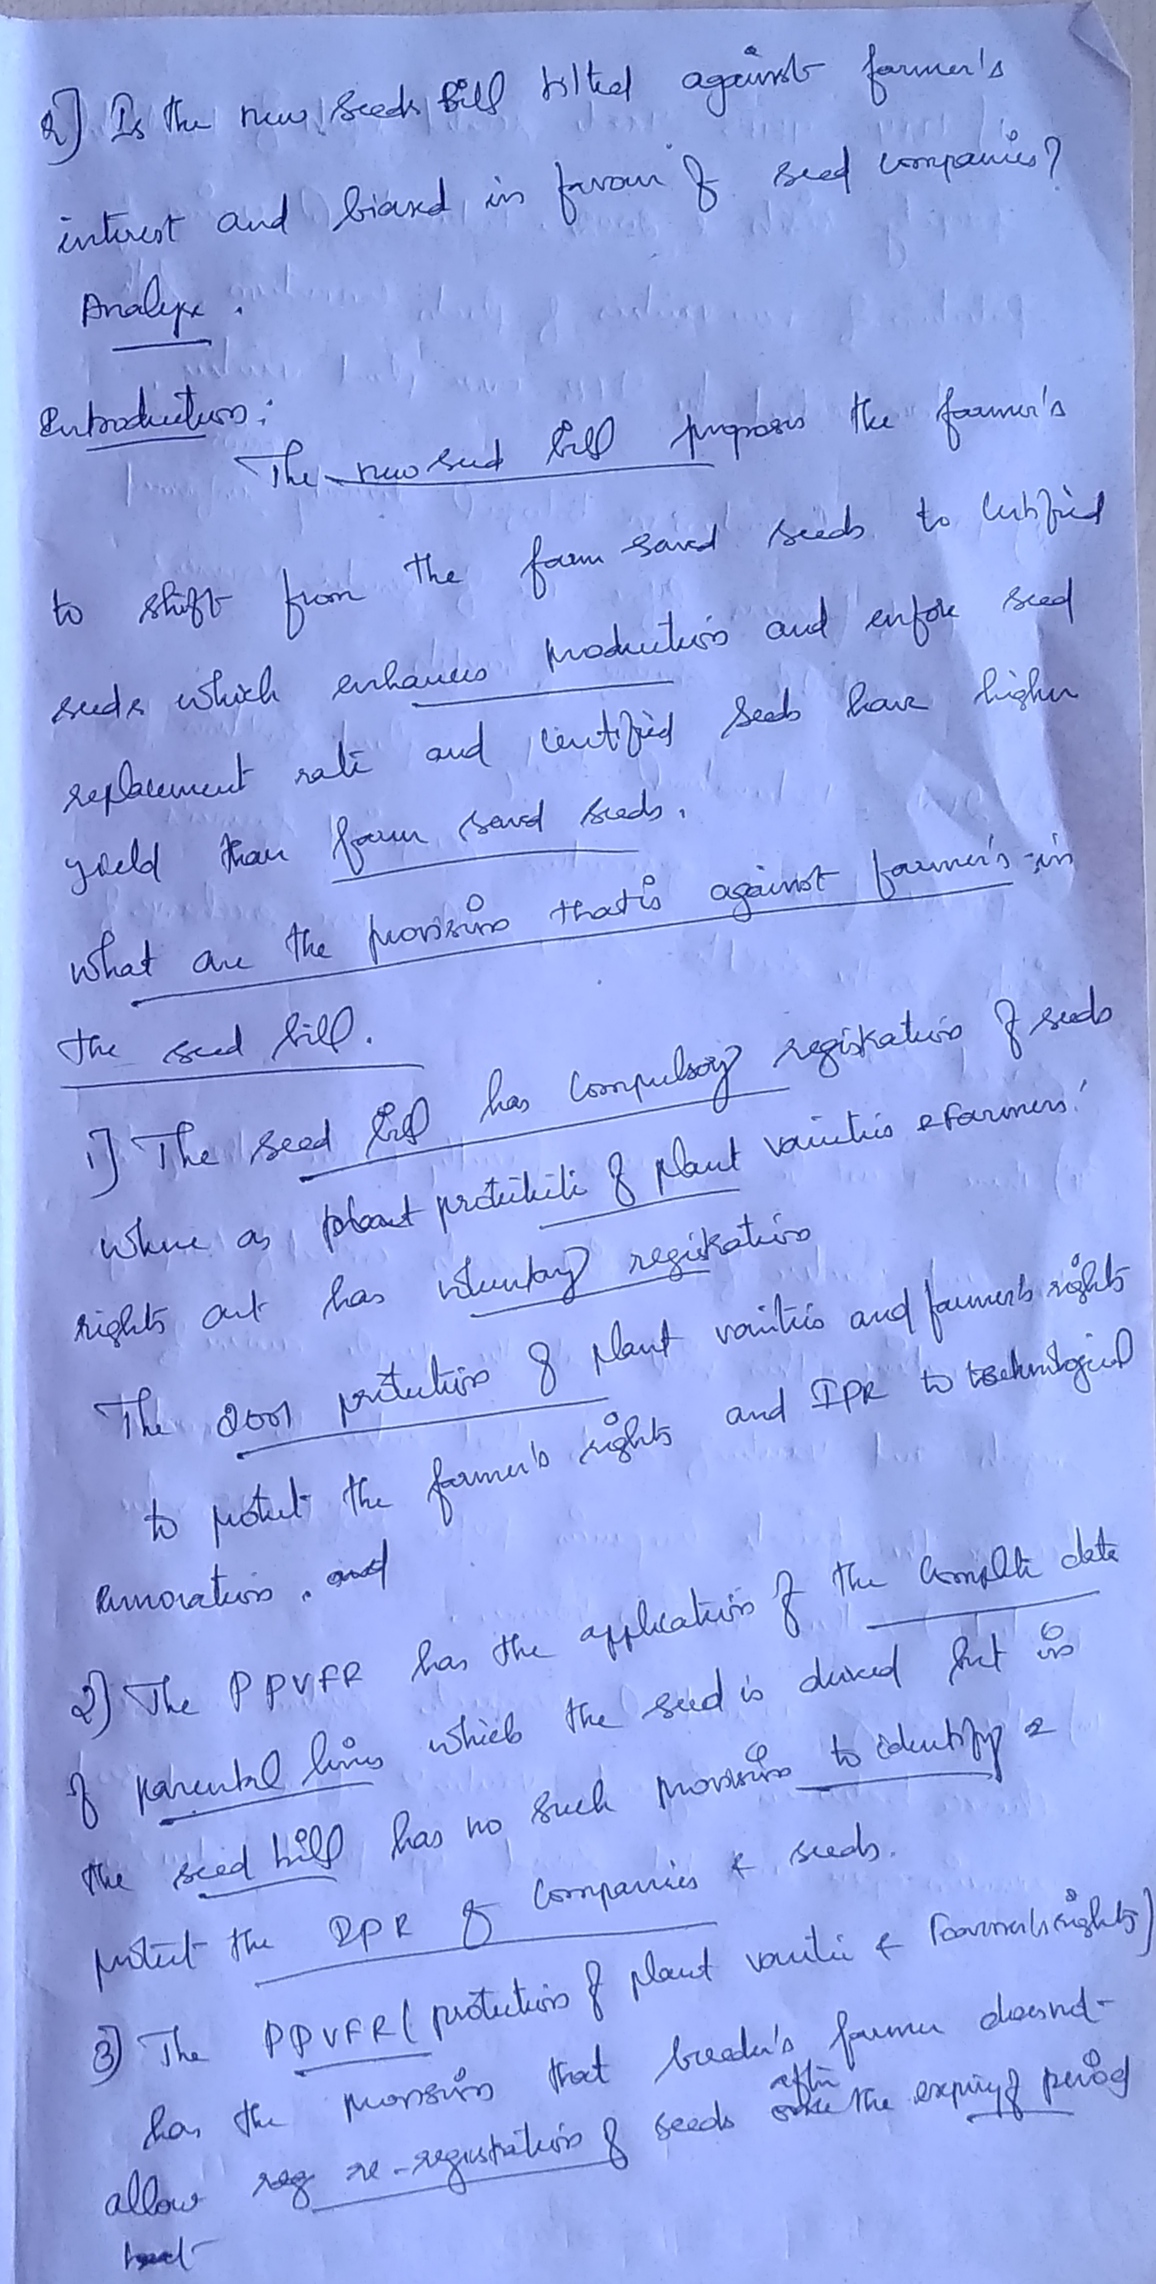 Q] Is the new Seeds Bill tilted against farmer's
interest and biased in favour of seed companies?
Analyse.
Introduction:
The new seed bill proposes the farmer's
to shift from the farm saved seeds to certified
seeds which enhances production and enfore seed
replacement rate and certified seeds have higher
yield than farm saved seeds.
What are the provisions that is against farmer's in
the seed bill.
1] The seed bill has compulsory registration of seeds
where as plant of plant varieties & farmers'
rights act has voluntary registration
The 2001 protection of plant varities and farmer's rights
to protect the farmer's rights and IPR to technological
innovation. and
2) The PPVFR has the application of the complete data
of parental lines which the seed is derived but in
the seed bill has no such provisions to identify &
protect the IPR of companies & seeds.
3) The PPVFR (protection of plant varitie & Farmer's rights)
has the provisions that breeder's farmer doesnot
allow reg re-registration of seeds after the expiry of period
but